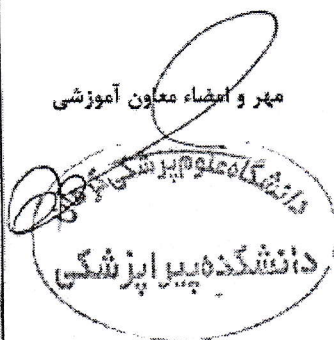 مهر و امضاء معاون آموزشی
دانشگاه علوم پزشکی
دانشکده پیراپزشکی